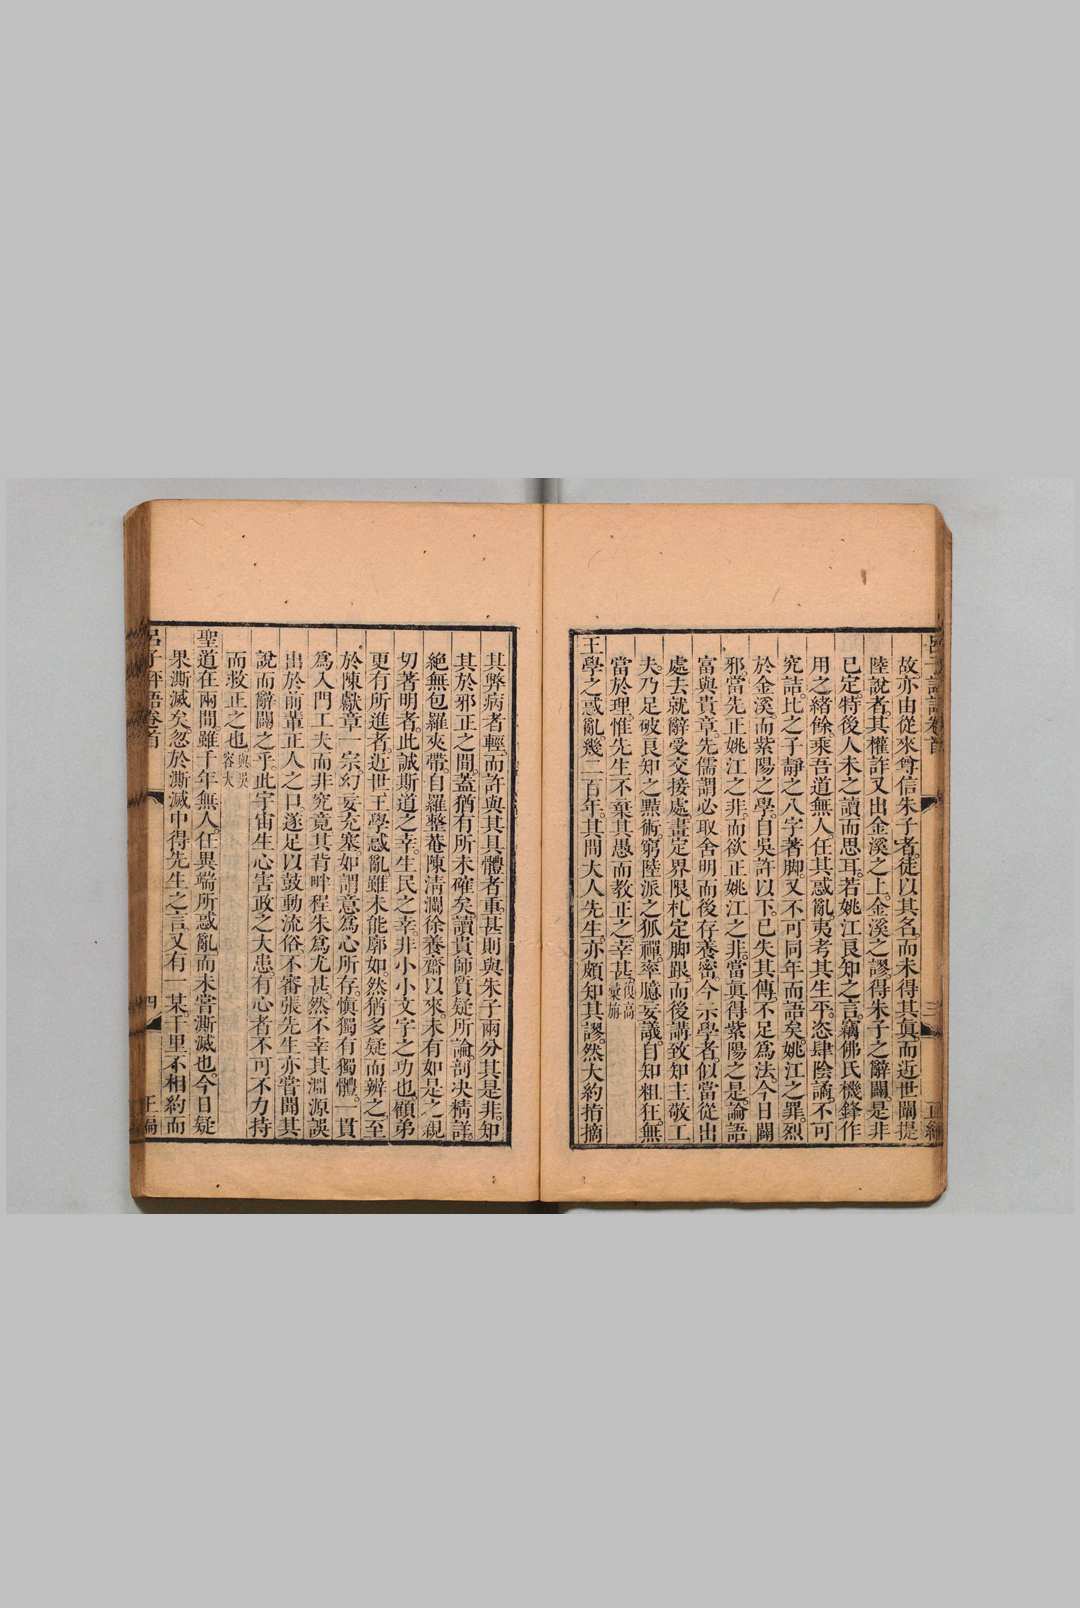 呂子評語卷首
三
正編
故亦由從來尊信朱子者。徒以其名。而未得其眞。而近世闢提
陸說者。其權詐又出金溪之上。金溪之謬。得朱子之辭闢。是非
已定。特後人未之讀而思耳。若姚江良知之言。竊佛氏機鋒作
用之緒餘。乘吾道無人。任其惑亂。夷考其生平。恣肆陰譎。不可
究詰。比之子靜之八字著脚。又不可同年而語矣。姚江之罪。烈
於金溪。而紫陽之學。自吳許以下。已失其傳。不足爲法。今日闢
邪。當先正姚江之非。而欲正姚江之非。當眞得紫陽之是。論語
富與貴章。先儒謂必取舍明而後存養密。今示學者。似當從出
處去就辭受交接處。畫定界限。札定脚跟。而後講致知主敬工
夫。乃足破良知之黠術。窮陸派之狐禪。率臆妄議。自知粗狂。無
當於理。惟先生不棄其愚而教正之。幸甚。復高彙旃
王學之惑亂。幾二百年。其間大人先生亦頗知其謬。然大約指摘
其弊病者輕。而許與其具體者重。甚則與朱子兩分其是非。知
其於邪正之間。蓋猶有所未確矣。讀貴師質疑所論。剖决精詳。
絕無包羅夾帶。自羅整菴陳清瀾徐養齋以來。未有如是之親
切著明者。此誠斯道之幸。生民之幸。非小小文字之功也。顧弟
更有所進者。近世王學惑亂。雖未能廓如。然猶多疑而辨之。至
於陳獻章一宗。幻妄充塞。如謂意爲心所存。愼獨有獨體。一貫
爲入門工夫而非究竟。其背畔程朱爲尤甚。然不幸其淵源誤
出於前輩正人之口。遂足以鼓動流俗。不審張先生亦嘗聞其
說而辭闢之乎。此宇宙生心害政之大患。有心者不可不力持
而救正之也。與吳容大
聖道在兩間。雖千年無人。任異端所惑亂。而未嘗澌滅也。今日疑
果澌滅矣。忽於澌滅中得先生之言。又有一某。千里不相約而
呂子評語卷首
四